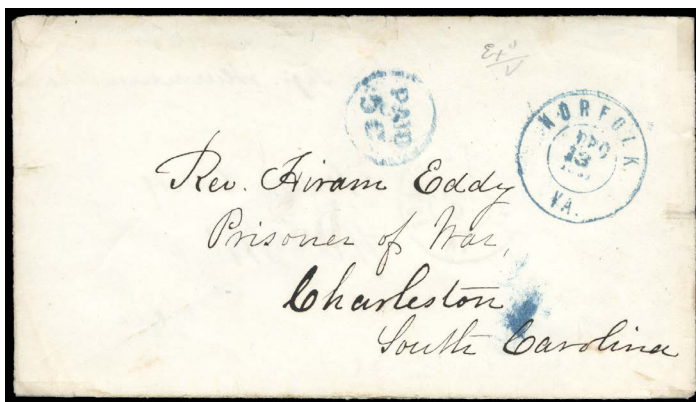 PAID
5 C
NORFOLK
DEC
13
VA.
Rev. Hiram Eddy
Prisoner of War,
Charleston
South Carolina